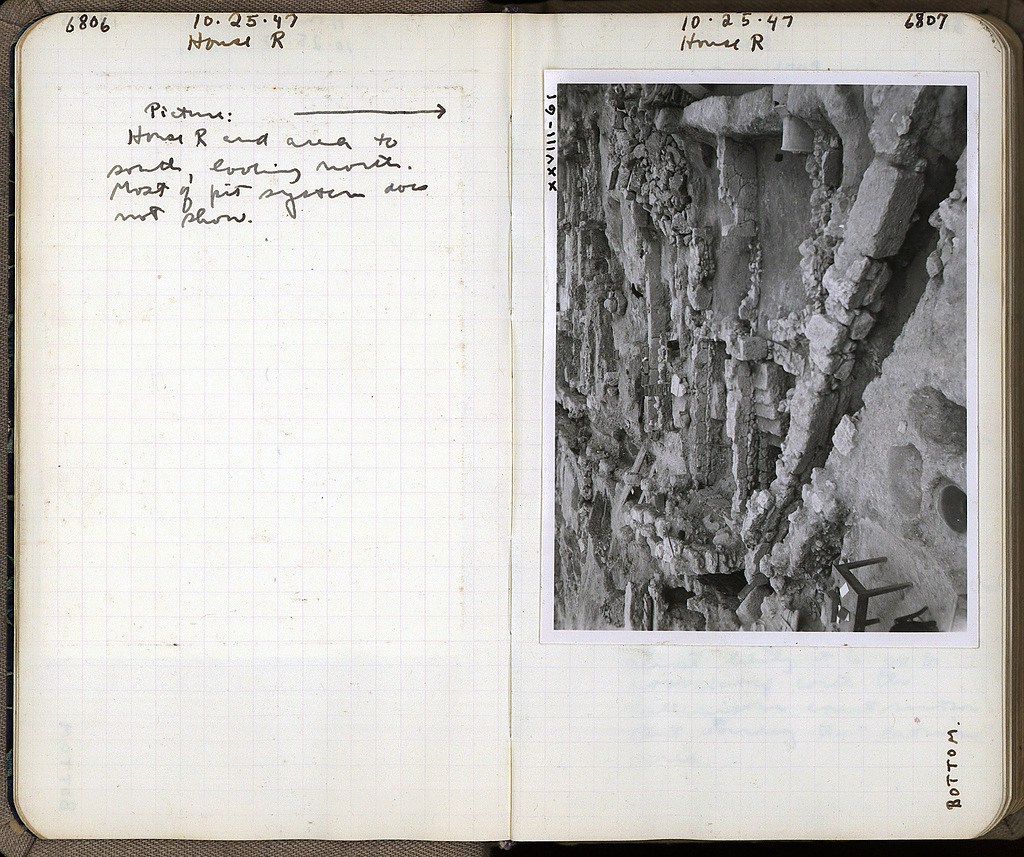 6806
10·25·47
House R
Picture:
House R and area to
south, looking north.
Most of pit system does
not show.
10·25·47
6807
House R
XXVIII-61
BOTTOM.